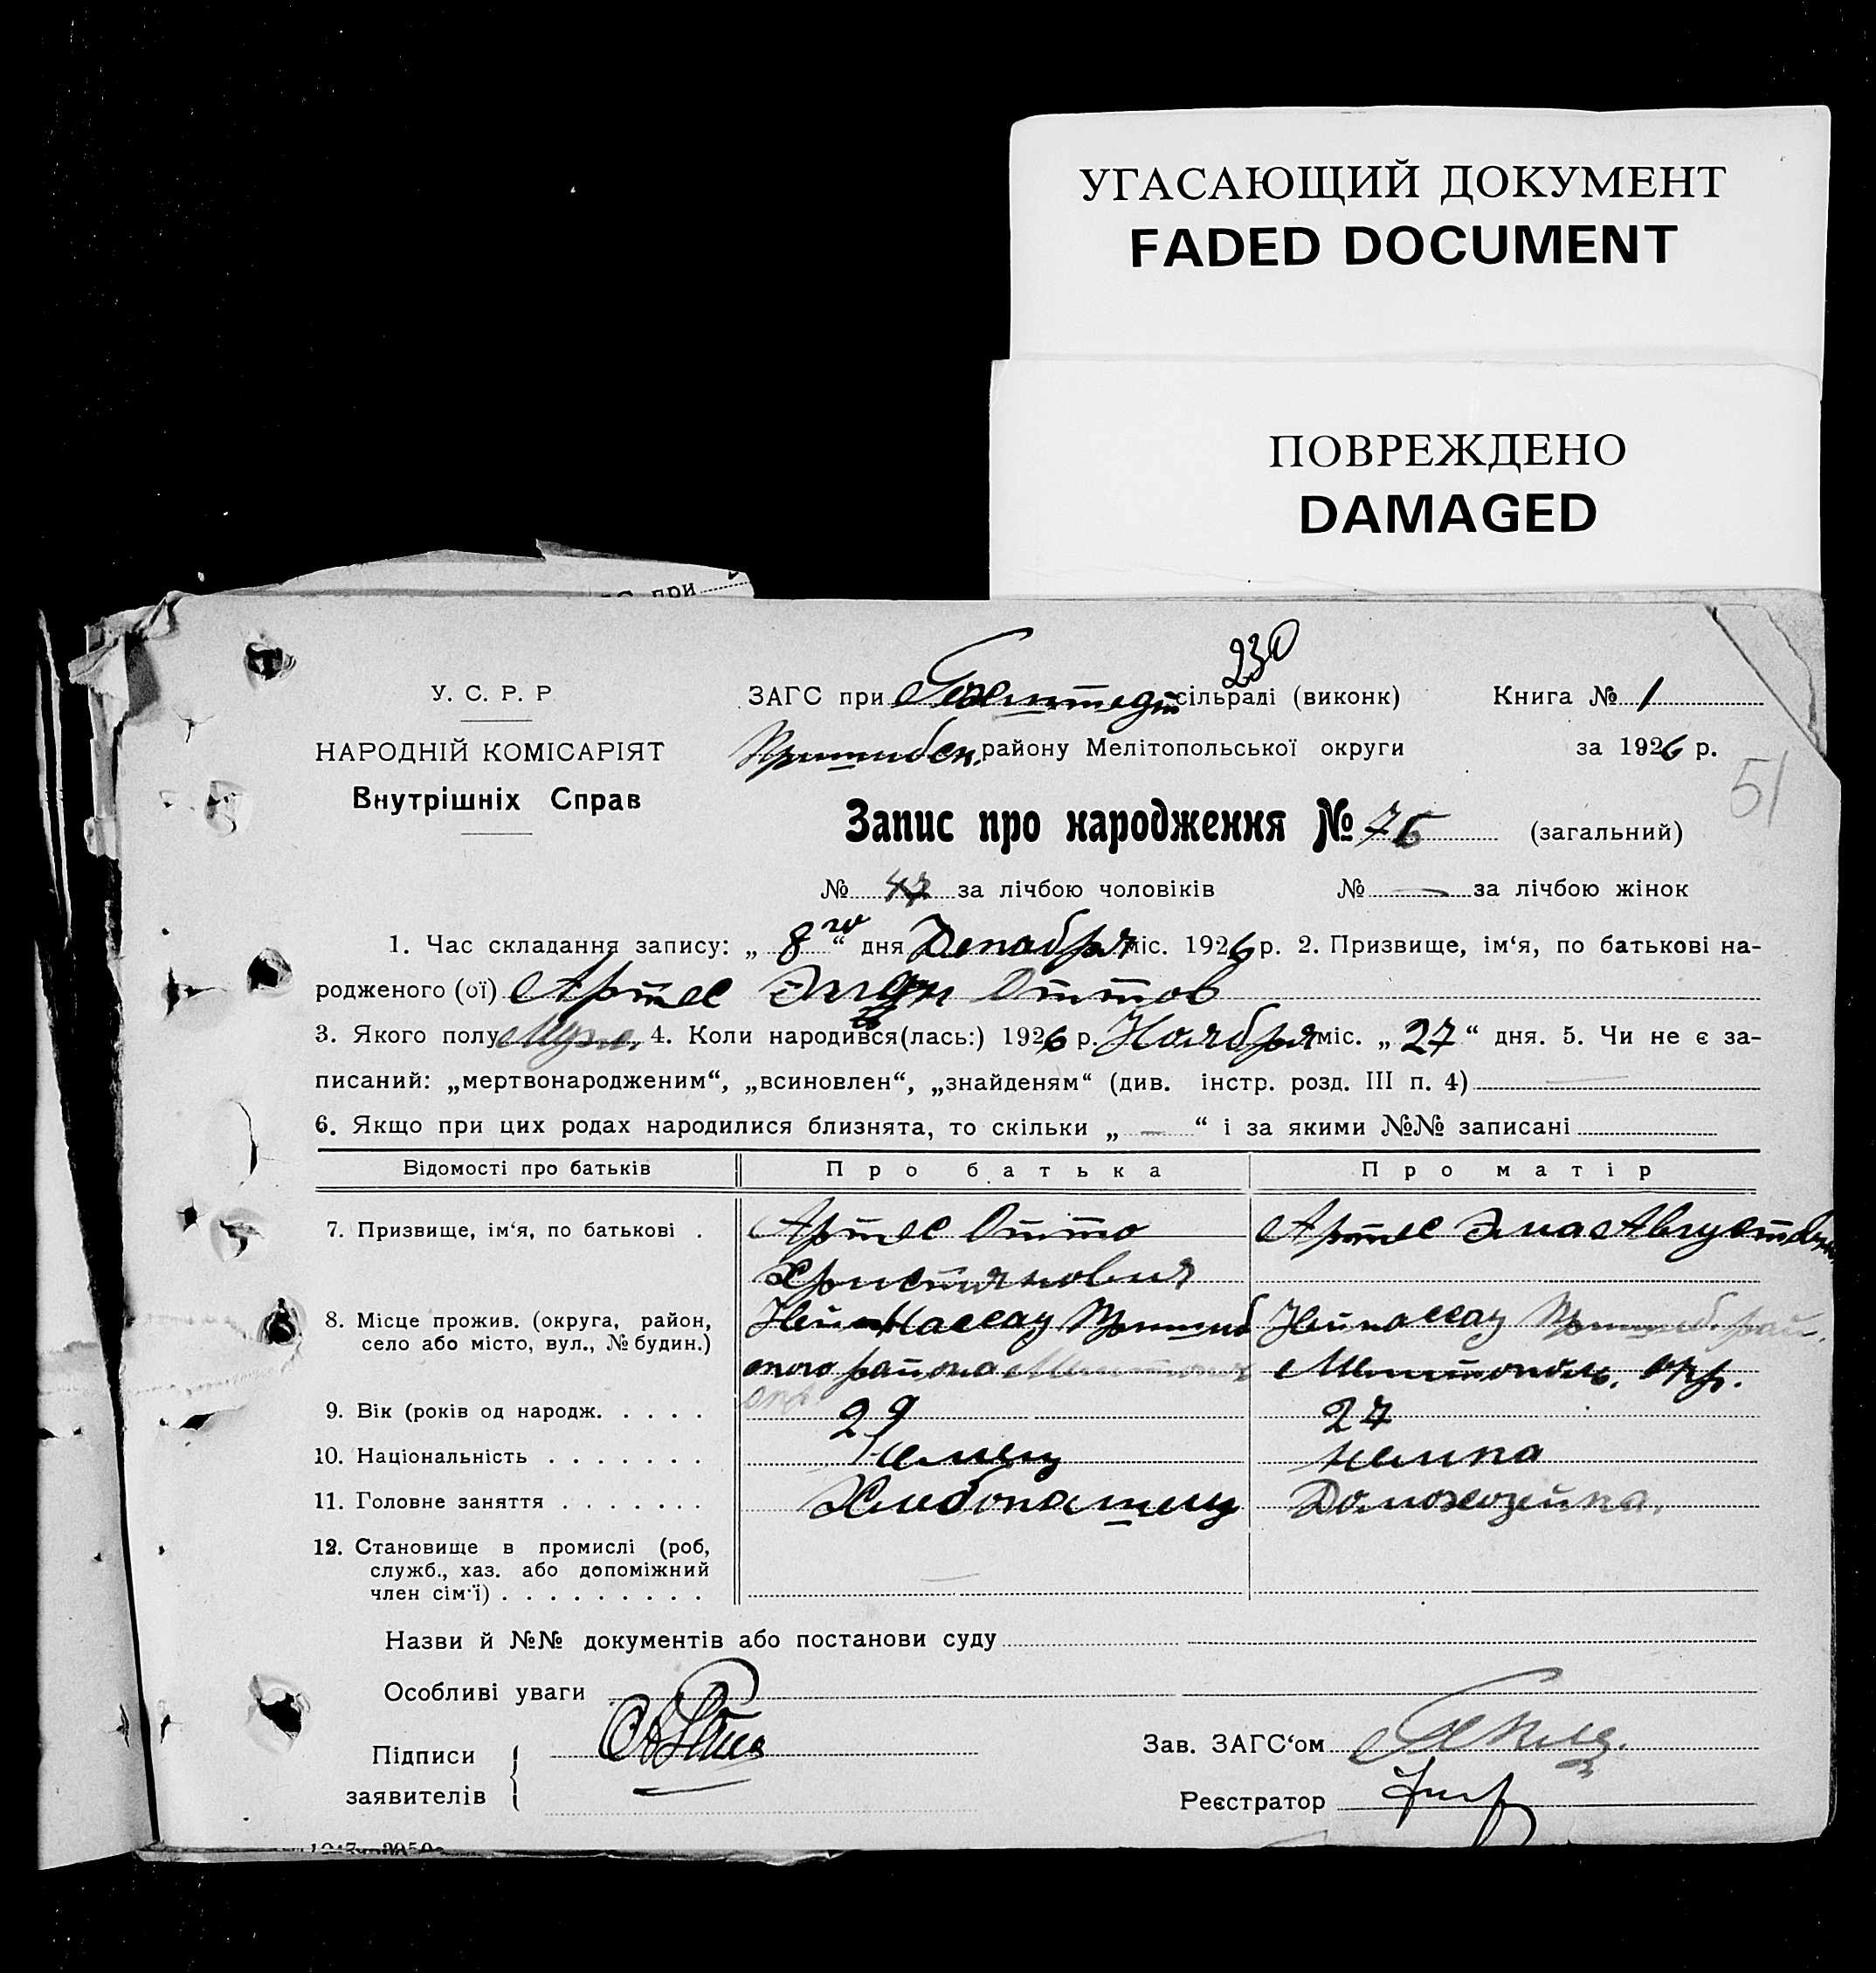 УГАСАЮЩИЙ ДОКУМЕНТ
FADED DOCUMENT
ПОВРЕЖДЕНО
DAMAGED
при
230
У. С. Р. Р
ЗАГС при сільраді (виконк) Книга № 1
НАРОДНІЙ КОМІСАРІЯТ
Пришибск. району Мелітопольської округи за 1926 р.
51
Внутрішніх Справ
Запис про народження № 76 (загальний)
№ 47 за лічбою чоловіків № — за лічбою жінок
1. Час складання запису: „ 8го “ дня Декабря міс. 1926 р. 2. Призвище, ім‘я, по батькові на-
родженого (ої) Артес Оттов
3. Якого полу Муж. 4. Коли народився(лась:) 1926 р. Ноября міс. „ 27 “ дня. 5. Чи не є за-
писаний: „мертвонародженим“, „всиновлен“, „знайденям“ (див. інстр. розд. III п. 4) —
6. Якщо при цих родах народилися близнята, то скільки „ — “ і за якими №№ записані
Відомості про батьків Про батька Про матір
7. Призвище, ім‘я, по батькові . Артес Отто Артес Эма Августовна
Христианович
8. Місце прожив. (округа, район, Нейнассау Пришиб Нейнассау Пришиб. рай.
село або місто, вул., № будин.) ского района Мелитопол Мелитополь. окр.
окр.
9. Вік (років од народж. . . . . 29 27
10. Національність . . . . . . . Немец немка
11. Головне заняття . . . . . . . Хлебопашец Домохозяйка.
12. Становище в промислі (роб,
служб., хаз. або допоміжний
член сім‘ї) . . . . . . . . . —
Назви й №№ документів або постанови суду
Особливі уваги
Підписи
Зав. ЗАГС‘ом
заявителів
Реєстратор